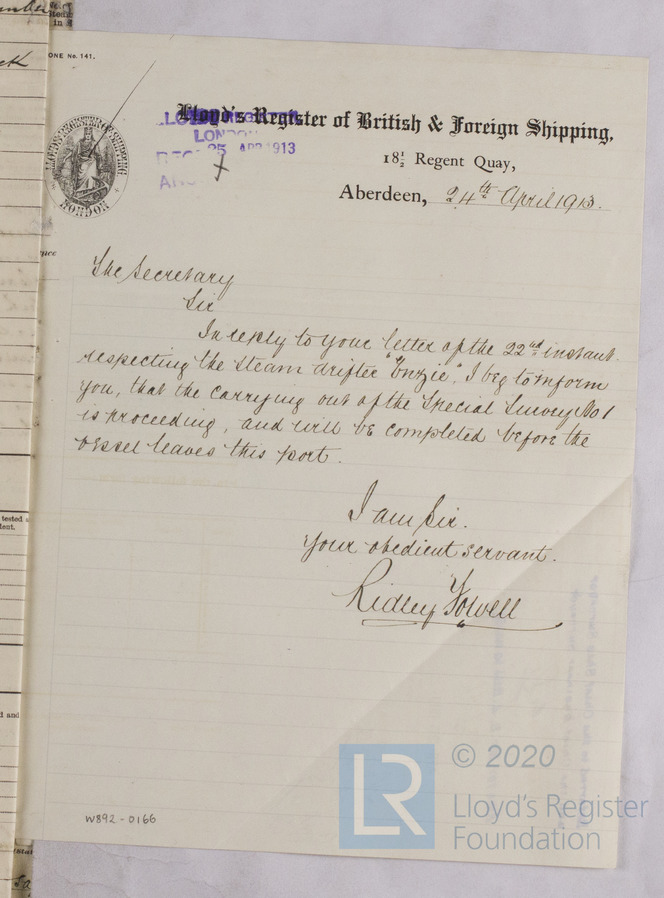 ONE No. 141.
Lloyd's Register of British & Foreign Shipping,
LLOYD'S REGISTER
LONDON
REC 25 APR 1913
18½ Regent Quay,
Aberdeen, 24th April 1913.
LLOYD'S REGISTER OF BRITISH & FOREIGN SHIPPING
LONDON
The Secretary
Sir
In reply to your letter of the 22nd instant.
respecting the steam drifter "Enzie", I beg to inform
you, that the carrying out of the Special Survey No 1
is proceeding, and will be completed before the
vessel leaves this port.
I am Sir.
Your obedient servant.
Ridley Towell
W892-0166
tested
dent.
d and
LR
© 2020
Lloyd's Register
Foundation